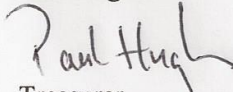 Paul Hugh
Treasurer